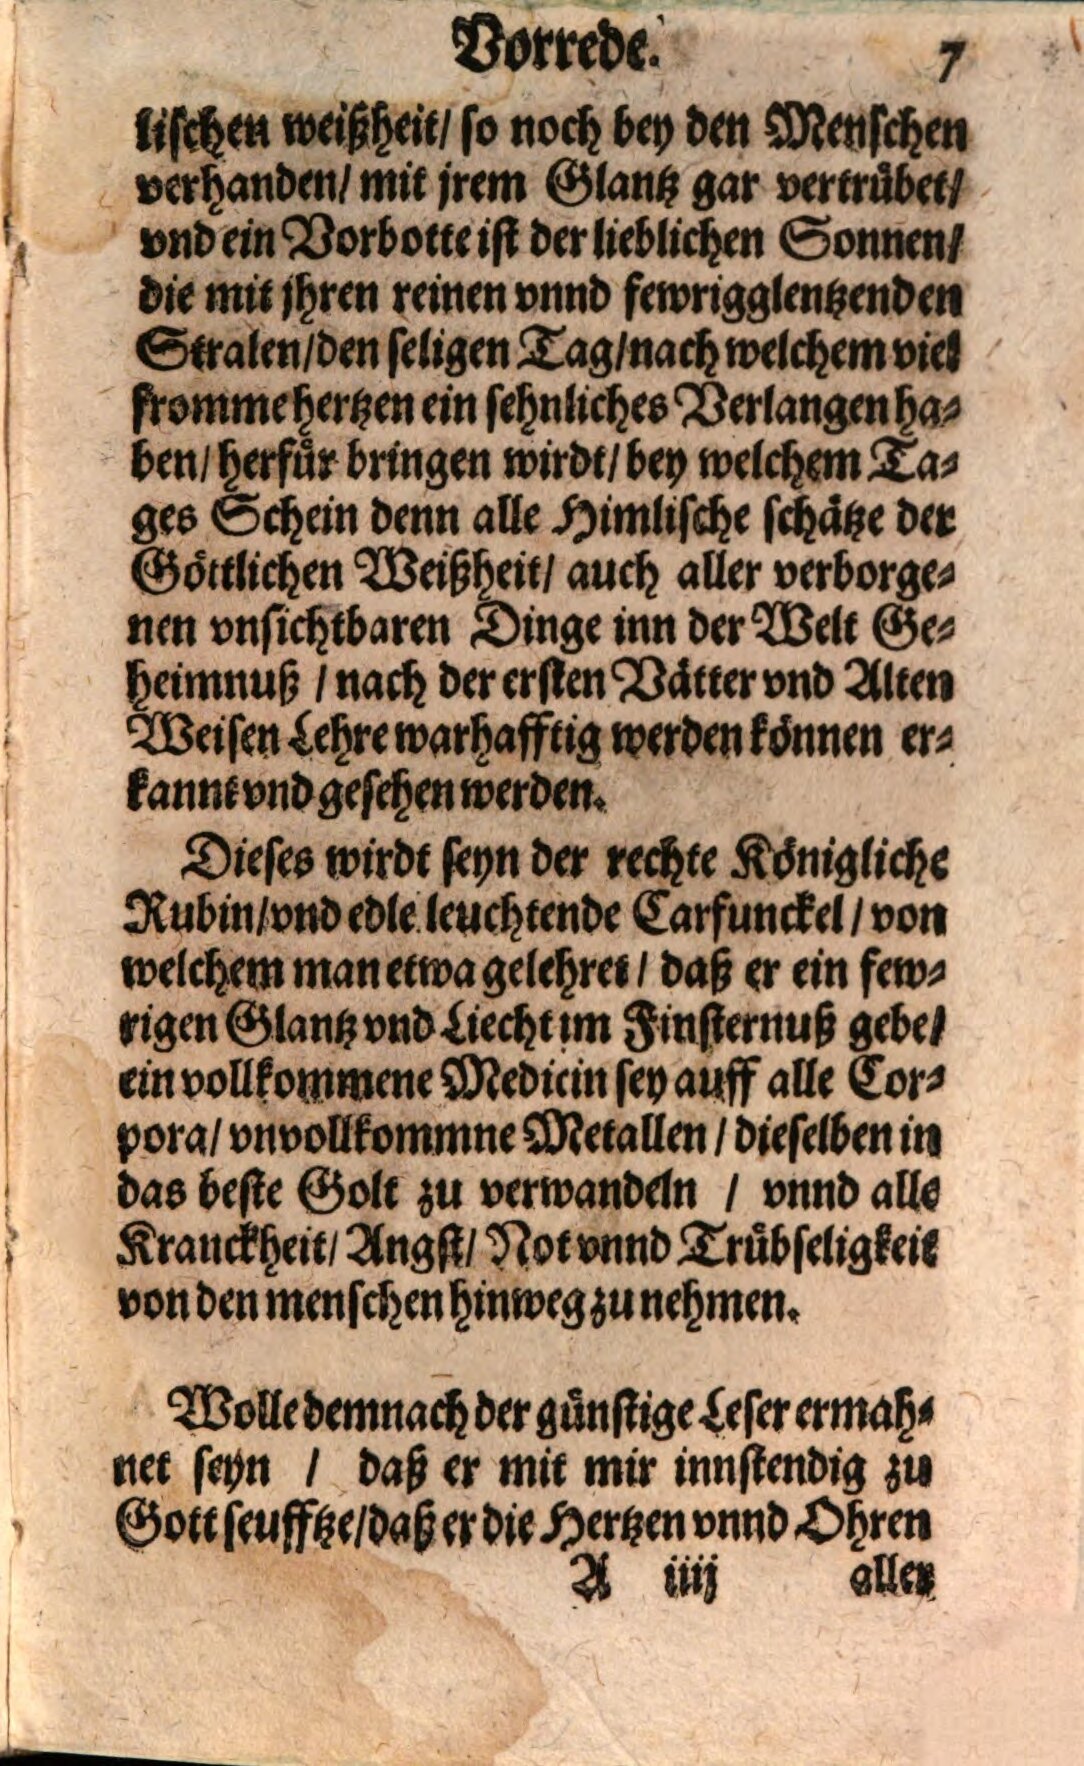 Vorrede. 7
lischen weißheit/ so noch bey den Menschen
verhanden/ mit jrem Glantz gar vertrübet/
vnd ein Vorbotte ist der lieblichen Sonnen/
die mit jhren reinen vnnd fewrigglentzenden
Stralen/ den seligen Tag/ nach welchem viel
fromme hertzen ein sehnliches Verlangen ha⸗
ben/ herfür bringen wirdt/ bey welchem Ta⸗
ges Schein denn alle Himlische schätze der
Göttlichen Weißheit/ auch aller verborge⸗
nen vnsichtbaren Dinge inn der Welt Ge⸗
heimnuß / nach der ersten Vätter vnd Alten
Weisen Lehre warhafftig werden können er⸗
kannt vnd gesehen werden.
Dieses wirdt seyn der rechte Königliche
Rubin/ vnd edle leuchtende Carfunckel / von
welchem man etwa gelehret / daß er ein few⸗
rigen Glantz vnd Liecht im Finsternuß gebe/
ein vollkommene Medicin sey auff alle Cor⸗
pora/ vnvollkommne Metallen / dieselben in
das beste Golt zu verwandeln / vnnd alle
Kranckheit/ Angst/ Not vnnd Trübseligkeit
von den menschen hinweg zu nehmen.
Wolle demnach der günstige Leser ermah⸗
net seyn / daß er mit mir innstendig zu
Gott seufftze/ daß er die Hertzen vnnd Ohren
A iiij aller